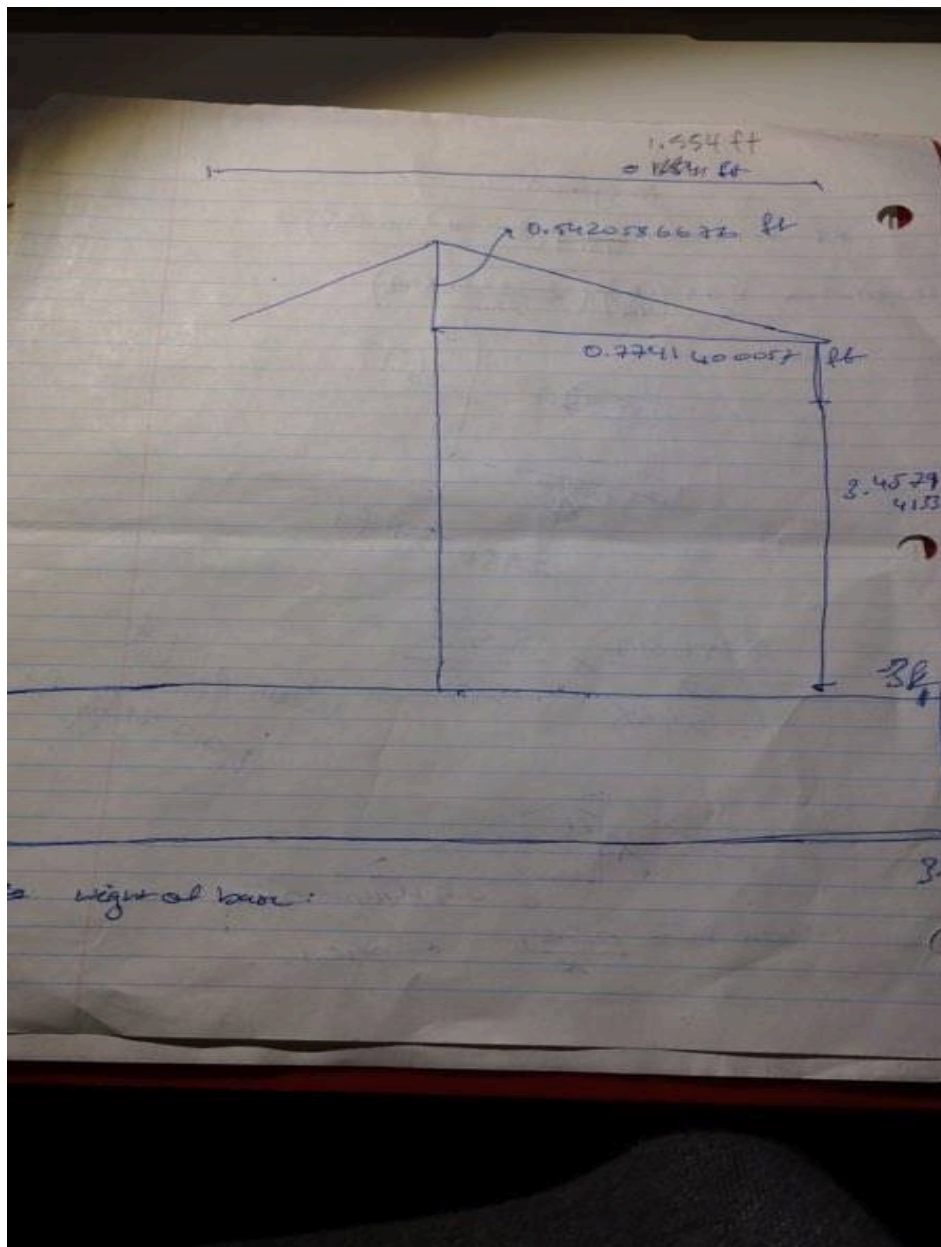 1.554 ft
0.5420586676 ft
0.7741400057 ft
3.4579
4133
3
weight of base: